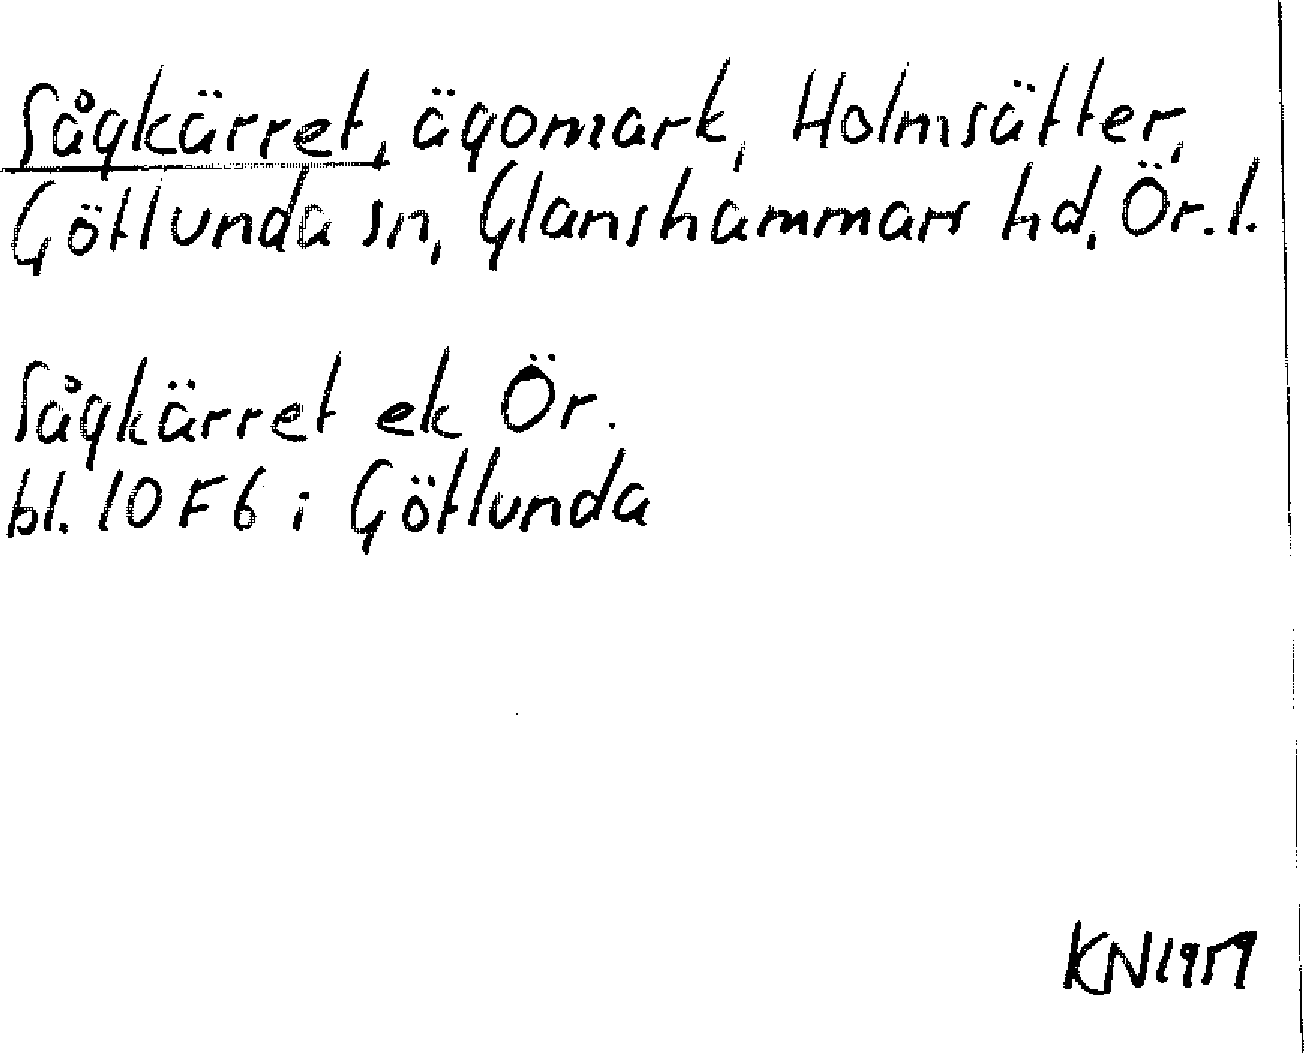 Sågkärret, ägomark, Holmsätter,
Götlunda sn, Glanshammars hd, Ör. l.
Sågkärret ek Ör.
bl. 10 F 6 i Götlunda
KN 1959